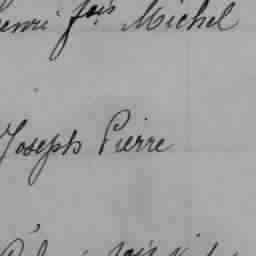 Henri fois Michel
Joseph Pierre